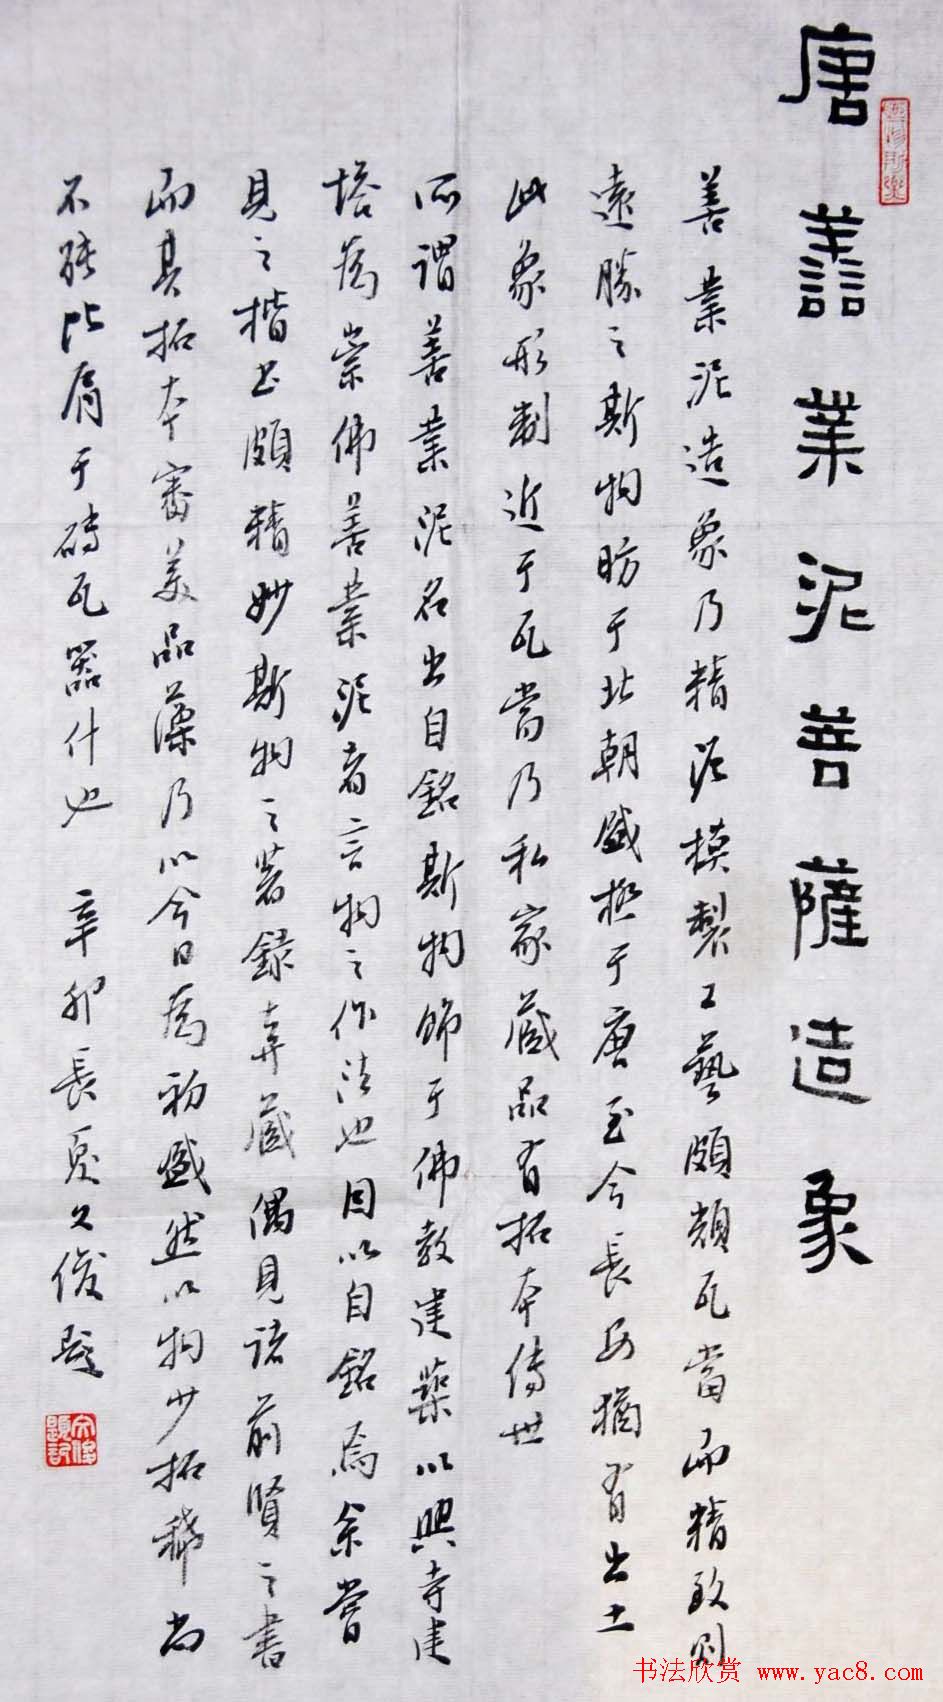 唐善業泥菩薩造象
善業泥造象乃精泥模製工藝頗類瓦當而精致則
遠勝之斯物昉于北朝盛極于唐至今長安猶有出土
此象形制近于瓦當乃私家藏品有拓本傳世
所謂善業泥名出自銘斯物飾于佛教建築以興寺建
塔為崇佛善業泥者言物之作法也因以自銘焉余嘗
見之楷書頗精妙斯物之著錄弆藏偶見諸前賢之書
而其拓本審美品藻乃以今日為初盛然以物少拓稀尚
不能比肩于磚瓦器什也 辛卯長夏久俊題
無伤斯樂
题記
书法欣赏 www.yac8.com